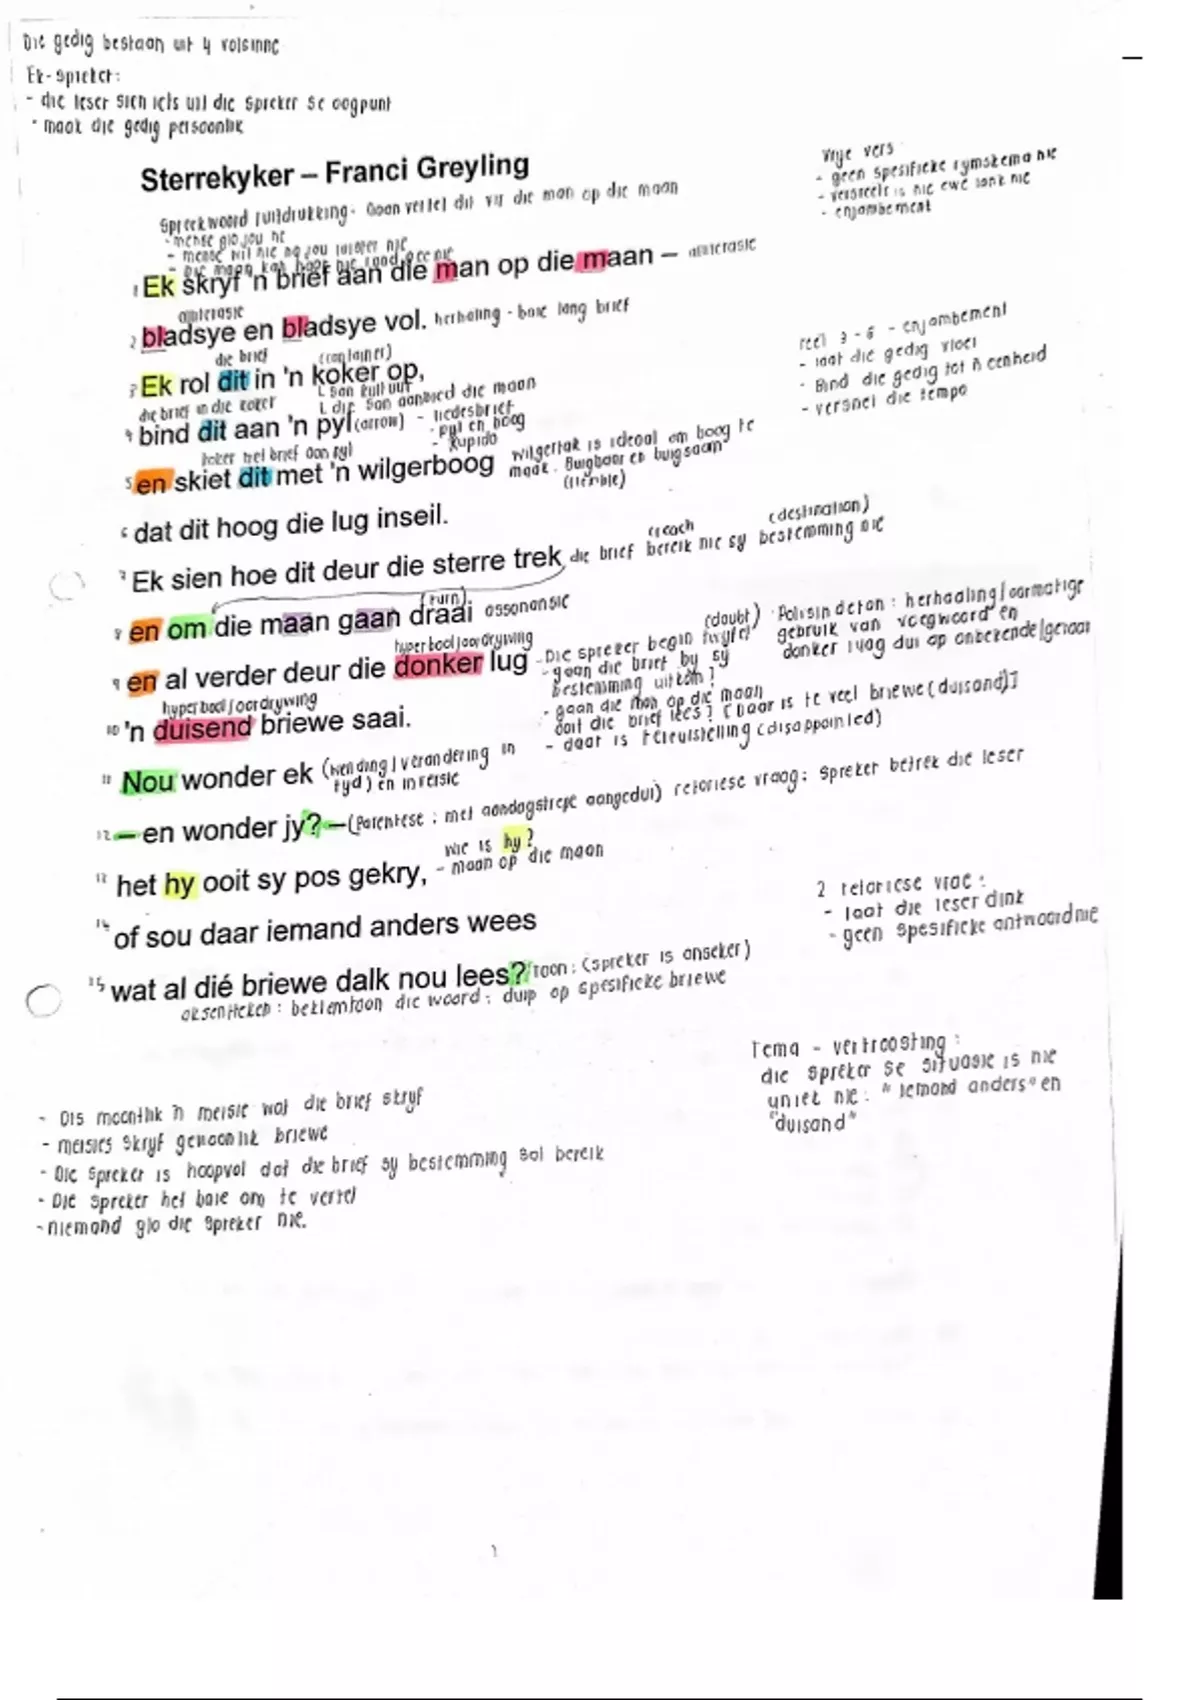 Die gedig bestaan uit 4 volsinne
Ek-spreker:
- die leser sien iets uit die spreker se oogpunt
- maak die gedig persoonlik
Sterrekyker – Franci Greyling
Vrye vers
- geen spesifieke rymskema nie
- versreëls is nie ewe lank nie
- enjambement
Spreekwoord / uitdrukking: Gaan vertel dit vir die man op die maan
- mense glo jou nie
- mense wil nie na jou luister nie
- Die maan kan hoor nie raad gee nie
1 Ek skryf 'n brief aan die man op die maan – alliterasie
alliterasie
2 bladsye en bladsye vol. herhaling - baie lang brief
die brief (container)
3 Ek rol dit in 'n koker op,
die brief in die koker
4 bind dit aan 'n pyl (arrow)
- liedesbrief
- pyl en boog
- Kupido
koker met brief aan pyl
5 en skiet dit met 'n wilgerboog
wilgertak is ideaal om boog te
maak. Buigbaar en buigsaam
(flexible)
reël 3 - 6 - enjambement
- laat die gedig vloei
- Bind die gedig tot 'n eenheid
- versnel die tempo
6 dat dit hoog die lug inseil.
(reach (destination)
7 Ek sien hoe dit deur die sterre trek die brief bereik nie sy bestemming nie
(turn)
8 en om die maan gaan draai assonansie
hyperbool/oordrywing
9 en al verder deur die donker lug
- Die spreker begin twyfel (doubt)
- gaan die brief by sy
bestemming uitkom?
- gaan die man op die maan
ooit die brief lees? [Daar is te veel briewe (duisend)]
- daar is teleurstelling (disappointed)
Polisindeton: herhaaling / oormatige
gebruik van voegwoord en
donker lug dui op onbekende/gevaar
hyperbool/oordrywing
10 'n duisend briewe saai.
11 Nou wonder ek (wending / verandering in
tyd) en inversie
12 – en wonder jy? – (Parentese: met aandagstrepe aangedui) retoriese vraag: spreker betrek die leser
wie is hy?
13 het hy ooit sy pos gekry, - maan op die maan
14 of sou daar iemand anders wees
2 retoriese vrae:
- laat die leser dink
- geen spesifieke antwoord nie
15 wat al dié briewe dalk nou lees? Toon: (spreker is onseker)
aksentteken: beklemtoon die woord: duip op spesifieke briewe
Tema - vertroosting:
die spreker se situasie is nie
uniek nie: "iemand anders" en
"duisand"
- Dis moontlik 'n meisie wat die brief skryf
- meisies skryf gewoonlik briewe
- Die spreker is hoopvol dat die brief sy bestemming sal bereik
- Die spreker het baie om te vertel
- niemand glo die spreker nie.
1